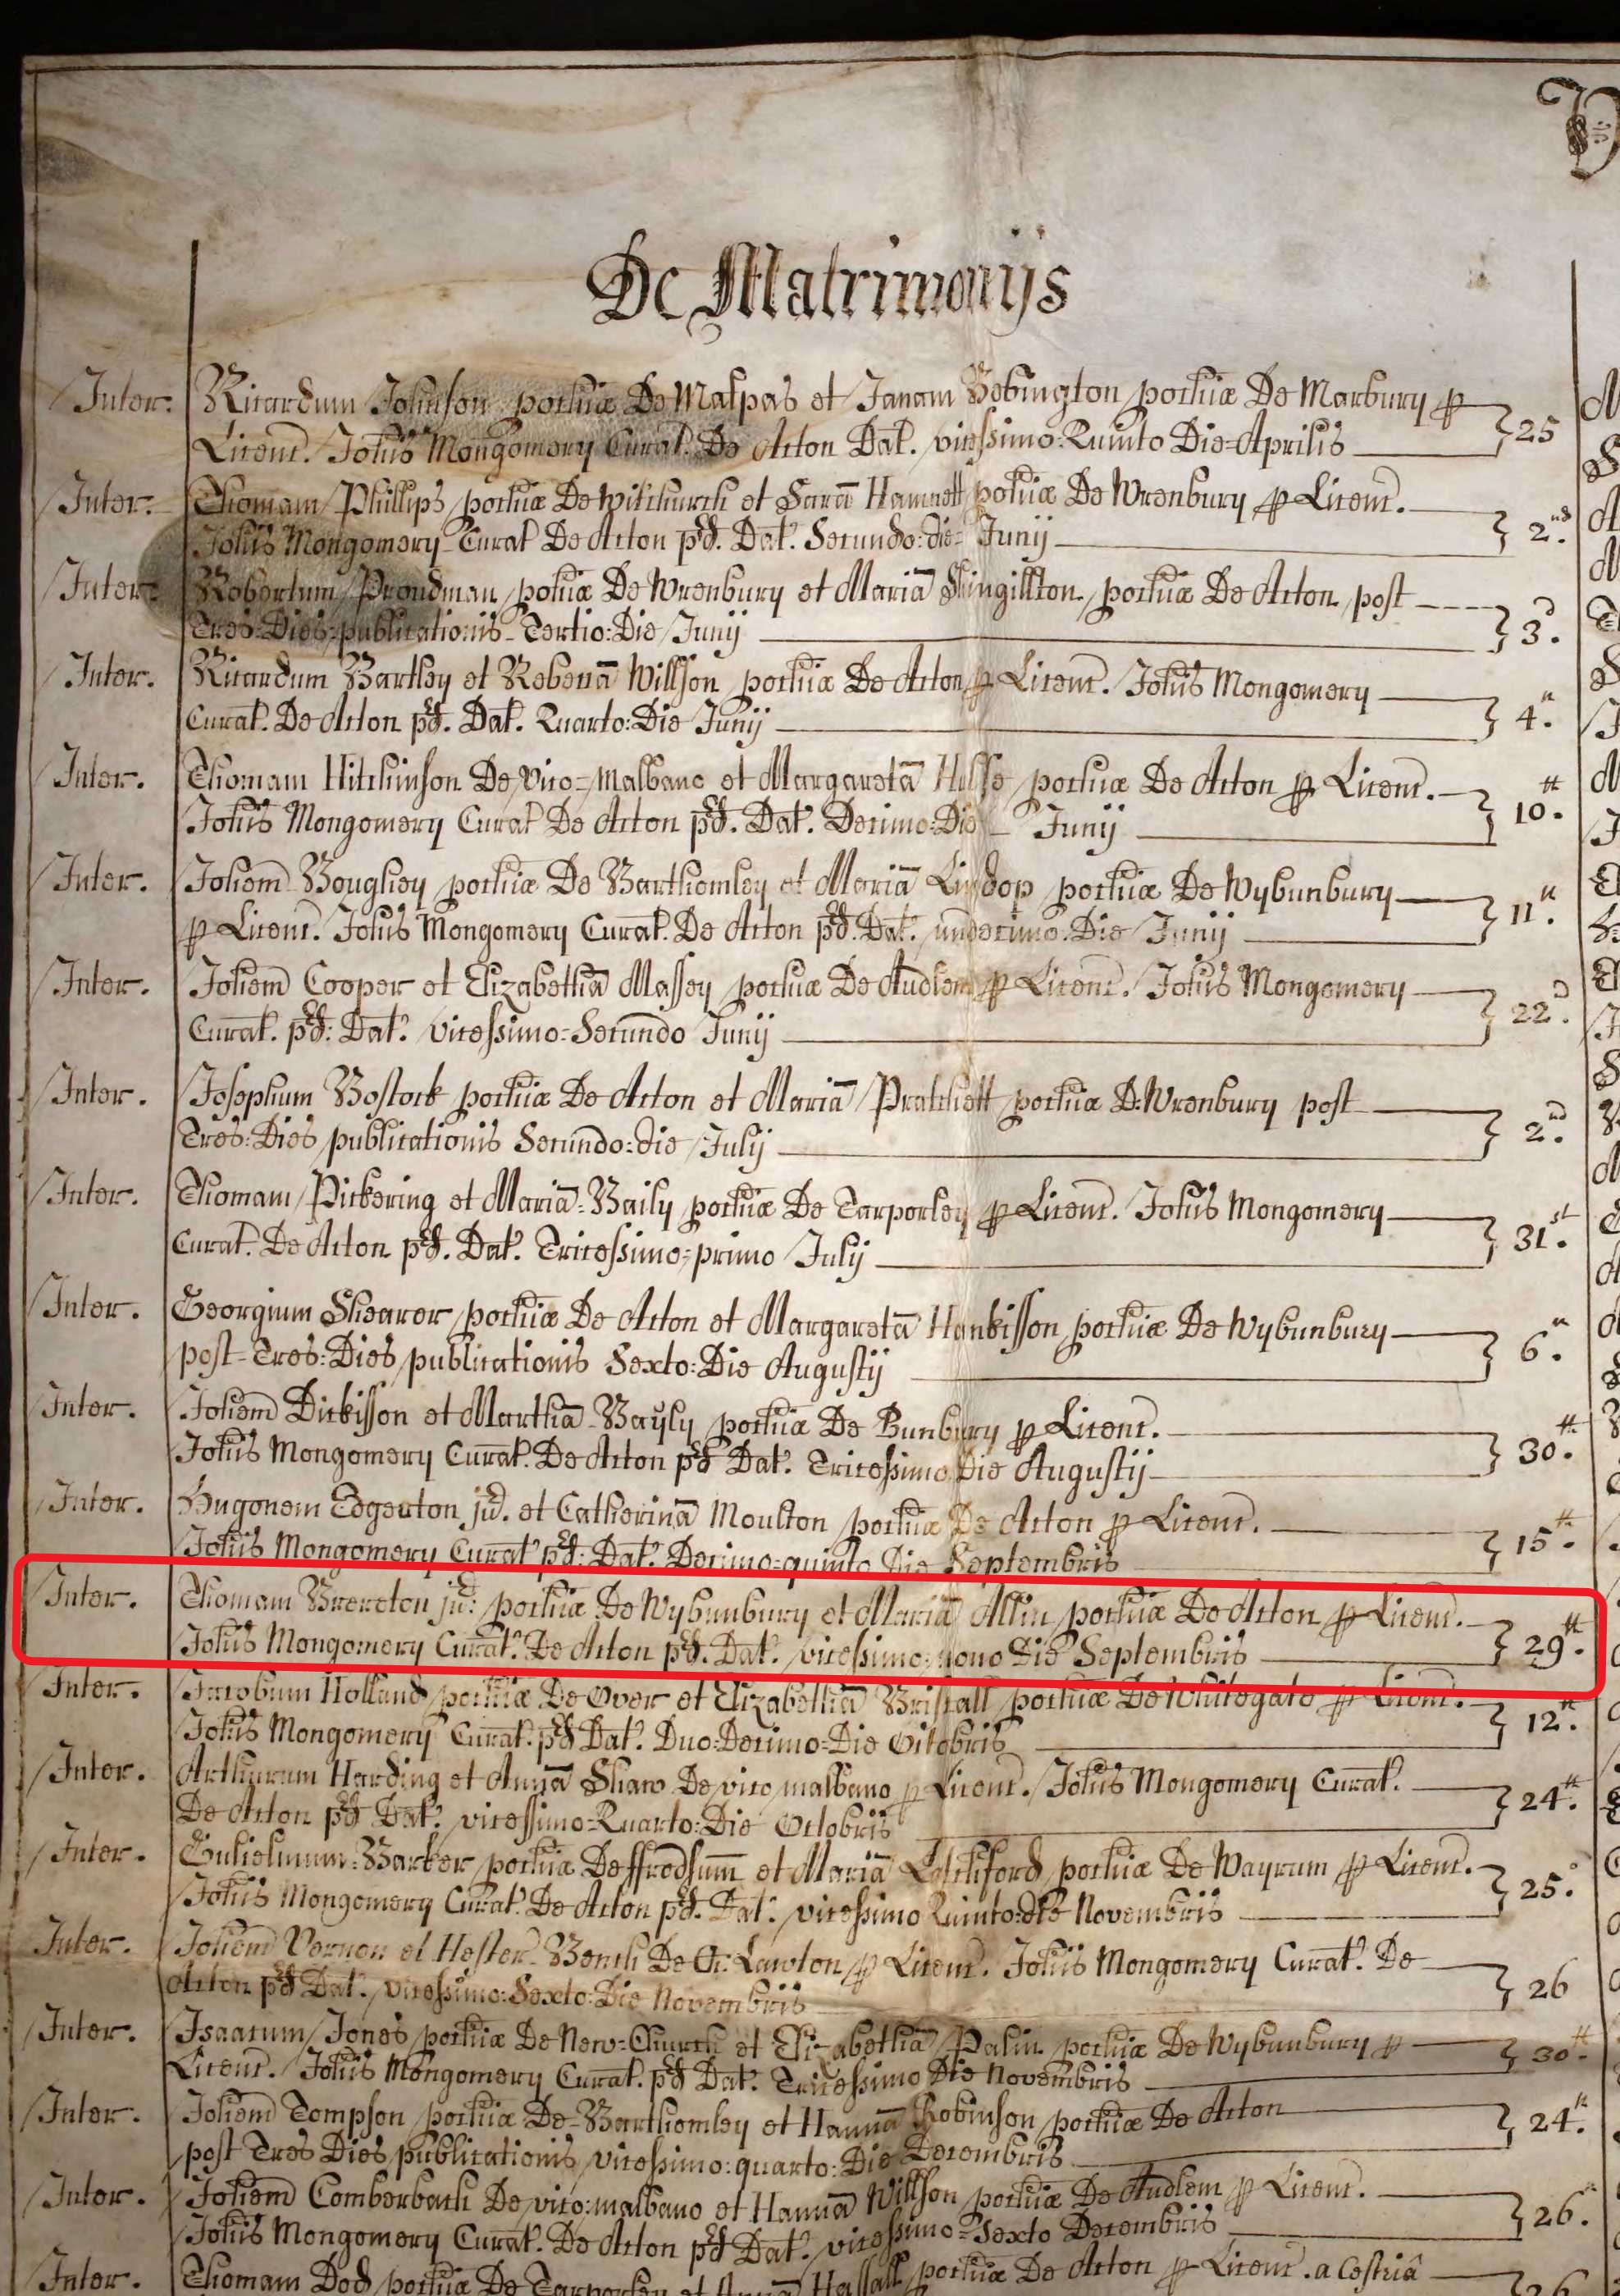 De Matrimonijs
Inter. Ricardum Johnson pochiæ De Malpas et Janam Bebington pochiæ De Marbury ꝑ
Licent. Johis Mongomery Curat. De Acton Dat. vicessimo-Quinto Die-Aprilis 25
Inter. Thomam Phillips pochiæ De Witchurch et Sarā Hamnett pohiæ De Wrenbury ꝑ Licent.
Johis Mongomery Curat De Acton pd. Dat. Secundo:die: Junij 2nd.
Inter. Robertum Proudman pohiæ De Wrenbury et Mariā pochiæ De Acton post
Tres:Dies:publicationis-Tertio:Die Junij 3d.
Inter. Ricardum Bartley et Rebenā Willson pochiæ De Acton ꝑ Licent. Johis Mongomery
Curat. De Acton pd. Dat. Quarto:Die Junij 4th.
Inter. Thomam Hitchinson De vico=Malbano et Margaretā pochiæ De Acton ꝑ Licent.
Johis Mongomery Curat De Acton pd. Dat. Decimo:Die Junij 10th.
Inter. Johem Boughey pochiæ De Barthomley et Mariā Lindop pochiæ De Wybunbury
ꝑ Licent. Johis Mongomery Curat. De Acton pd. Dat. undecimo:Die Junij 11th.
Inter. Johem Cooper et Elizabethā Massey pochiæ De Audlem ꝑ Licent. Johis Mongomery
Curat. pd: Dat. vicessimo-Secundo Junij 22d.
Inter. Josephum Bostock pochiæ De Acton et Mariā Pratchett pochiæ D:Wrenbury post
Tres:Dies publicationis Secundo:die July 2nd.
Inter. Thomam Pickering et Mariā:Baily pochiæ De Tarporley ꝑ Licent. Johis Mongomery
Curat. De Acton pd. Dat. Tricessimo:primo July 31st.
Inter. Georgium Shearer pochiæ De Acton et Margaretā Hankisson pochiæ De Wybunbury
post-Tres:Dies publicationis Sexto:Die Augustij 6th.
Inter. Johem Dickisson et Marthā-Bayly pochiæ De Bunbury ꝑ Licent.
Johis Mongomery Curat. De Acton pd Dat. Tricessimo Die Augustij 30th.
Inter. Hugonem Edgerton jud. et Catherinā Moulton pochiæ De Acton ꝑ Licent.
Johis Mongomery Curat pd: Dat. Decimo-quinto Die Septembris 15th.
Inter. Thomam Brereton jud: pochiæ De Wybunbury et Mariā Allin pochiæ De Acton ꝑ Licent.
Johis Mongomery Curat. De Acton pd. Dat. vicessimo:nono Die Septembris 29th.
Inter. Jacobum Holland pochiæ De Over et Elizabethā Bristall pochiæ De Whitegate ꝑ Licent.
Johis Mongomery Curat. pd Dat. Duo:Decimo:Die Octobris 12th.
Inter. Arthurum Harding et Annā Shaw De vico malbano ꝑ Licent. Johis Mongomery Curat.
De Acton pd Dat. vicessimo-Quarto:Die Octobris 24th.
Inter. Gulielmum:Barker pochiæ De ffrodsum et Mariā pochiæ De Wayrum ꝑ Licent.
Johis Mongomery Curat. De Acton pd. Dat. vicessimo Quinto:die Novembris 25.
Inter. Johem Vernon et Hester-Bench De Ch: Lawton ꝑ Licent. Johis Mongomery Curat. De
Acton pd Dat. vicessimo:Sexto:Die Novembris 26
Inter. Isaacum Jones pochiæ De New=Church et Elizabethā Palin pochiæ De Wybunbury ꝑ
Licent. Johis Mongomery Curat. pd Dat. Tricessimo Die Novembris 30th.
Inter. Johem Tompson pochiæ De-Barthomley et Hannā Robinson pochiæ De Acton
post Tres Dies publicationis vicessimo:quarto:Die Decembris 24th.
Inter. Johem Comberbach De vico:malbano et Hannā Willson pochiæ De Audlem ꝑ Licent.
Johis Mongomery Curat. De Acton pd Dat. vicessimo-Sexto Decembris 26.
Inter. Thomam Dod pochiæ De Tarporley et Annā Hassall pochiæ De Acton ꝑ Licent. a Cestriâ